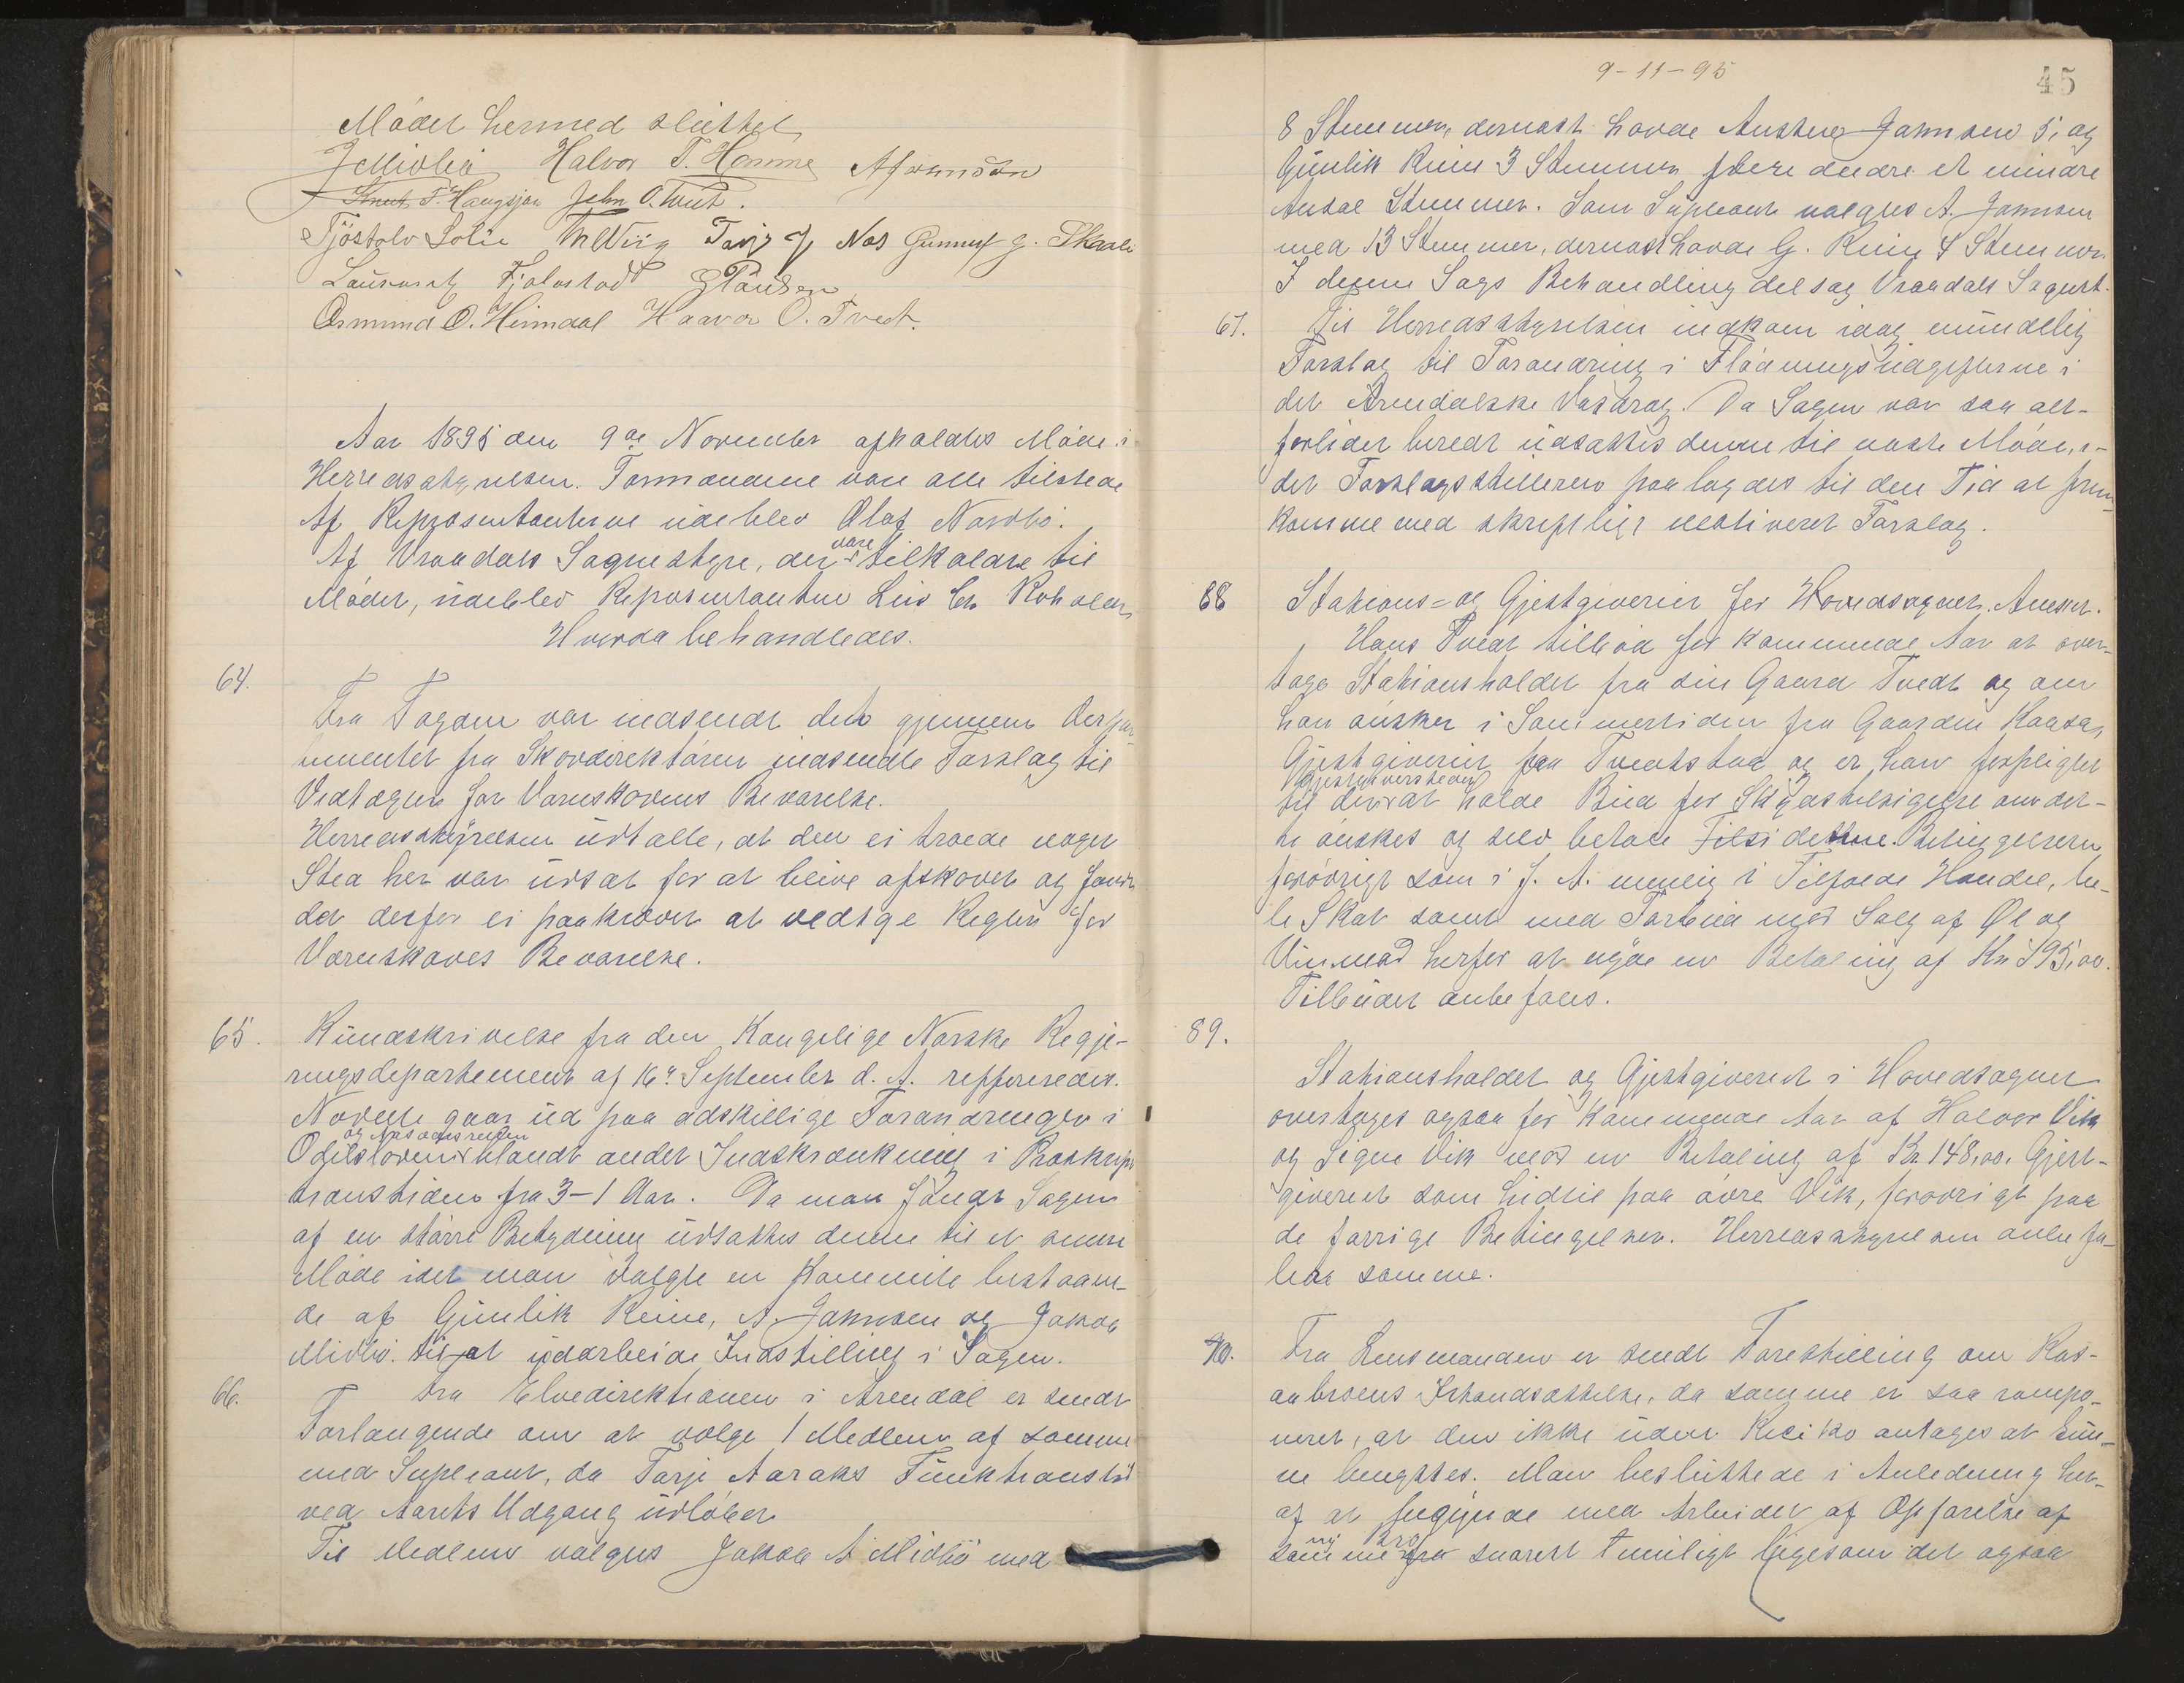 Mödet hermed sluttet
J Midbö Halvor T. Homme A Jamnson
Knut T. Haugsjaa John O. Tveit.
Tjöstolv Lolie Wiig Tarje Nes Gunnuf G. Skaali
Laurantz Fjalestad Paulsen
Osmund O. Heimdal Haavor O. Tvedt.
Aar 1895 den 9de November afholdtes Möde i
Herredsstyrelsen. Formændene vare alle tilstede
Af Repræsentanterne udeblev Olaf Næsbö.
Af Vraadals Sognestyre, der vare tilkaldte til
Mödet, udeblev Repræsentanten Leiv
Hvorda behandledes.
64.
Fra Fogden var indsendt det gjennem Depar-
tementet fra Skovdirektören indsendte Forslag til
Vedtægter for Værnskovens Bevarelse.
Herredsstyrelsen udtalte, at den ei troede noget
Sted her var udsat for at blive afskovet og fandt
det derfor ei paakrævet at vedtge Regler for
Værnskoves Bevarelse.
65. Rundskrivelse fra den Kongelige Norske Regje-
ringsdepartement af 16de September d. A. reffereredes.
Novelle gaar ud paa adskillige Forandringer i
og Aasædesretten
Odelsloven blandt andet Indskrænkning i Præskrip
tionstiden fra 3-1 Aar. Da man fandt Sagen
af en större Betydning udsattes denne til et senere
Möde idet man valgte en Kommite bestaaen-
de af Gunlik Reine, A. Jamnsen og Jakob
Midbö. til at udarbeide Indstilling i Sagen.
66. Fra Elvedirektionen i Arendal er sendt
Forlangende om at vælge 1 Medlem af samme
med Supleant, da Tarje Aaraks Funktionstid
ved Aarets Udgang udlöber
Til Medlem valgtes Jakob A Midbö med
9-11-95
45
8 Stemmer, dernæst havde Anstene Jamnsen 5, og
Gunlik Reine 3 Stemmer, flere andre et mindre
Antal Stemmer. Som Supleant valgtes A. Jamnsen
med 13 Stemmer, dernæst havde G. Reine 4 Stemmer.
I denne Sags Behandling deltog Vraadals Sognst.
67. Til Herredsstyrelsen indkom idag mundtlig
Forslag til Forandring i Flödningsudgifterne i
det Arendalske Vasdrag. Da Sagen var saa alt-
forlidet beredt udsattes denne til næste Möde, i-
det Forslagsstilleren paalagdes til den Tid at frem-
komme med skriftligt motiveret Forslag.
68 Stations= og Gjestgiveriet for Hovedsognet.
Hans Tvedt tilböd for kommende Aar at over-
tage Stationsholdet fra sin Gaard Tvedt og om
han önsker i Sommertiden fra Gaarden Haasa,
Gjestgiveriet paa Tvedtstöa og er han forpligtet
Gjestgiverstedet
til at holde Bud for Skydstilsigelse om det-
te önskes og selv betale Tilsidettne. Betingelserne
forövrigt som i f. A. nemlig i Tilfælde Handel, be-
le Skat samt med Forbud mod Salg af Öl og
Vin mod herfor at nyde en Betaling af Kr 395,00.
Tilbudet anbefales.
89.
Stationsholdet og Gjestgiveriet i Hovedsognet
overtages ogsaa for kommende Aar af Halvor Vik
og Signe Vik mod en Betaling af Kr. 148,00. Gjest-
giveriet som hidtil paa övre Vik, forövrigt paa
de forrige Betingelser. Herredsstyrelsen anbefa-
lede samme.
70. Fra Lensmanden er sendt Forestilling om Kos-
aabroens Istandsættelse, da samme er saa rampo-
neret, at den ikke uden Reciko antages at kun-
ne benyttes. Man besluttede i Anledning her-
af at begynde med Arbeidet af Opförelse af
ny Bro
samme saa snarest tmiligt ligesom det ogsaa